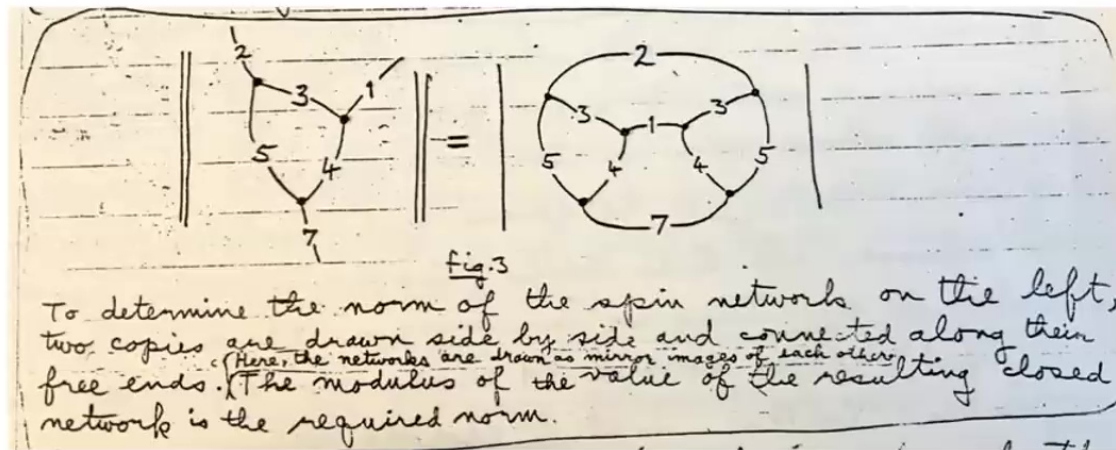 2 2
3 1 3 1 3
5 4 = 5 4 4 5
7 7
fig.3
To determine the norm of the spin network on the left,
two copies are drawn side by side and connected along their
(Here, the networks are drawn as mirror images of each other.)
free ends. The modulus of the value of the resulting closed
network is the required norm.